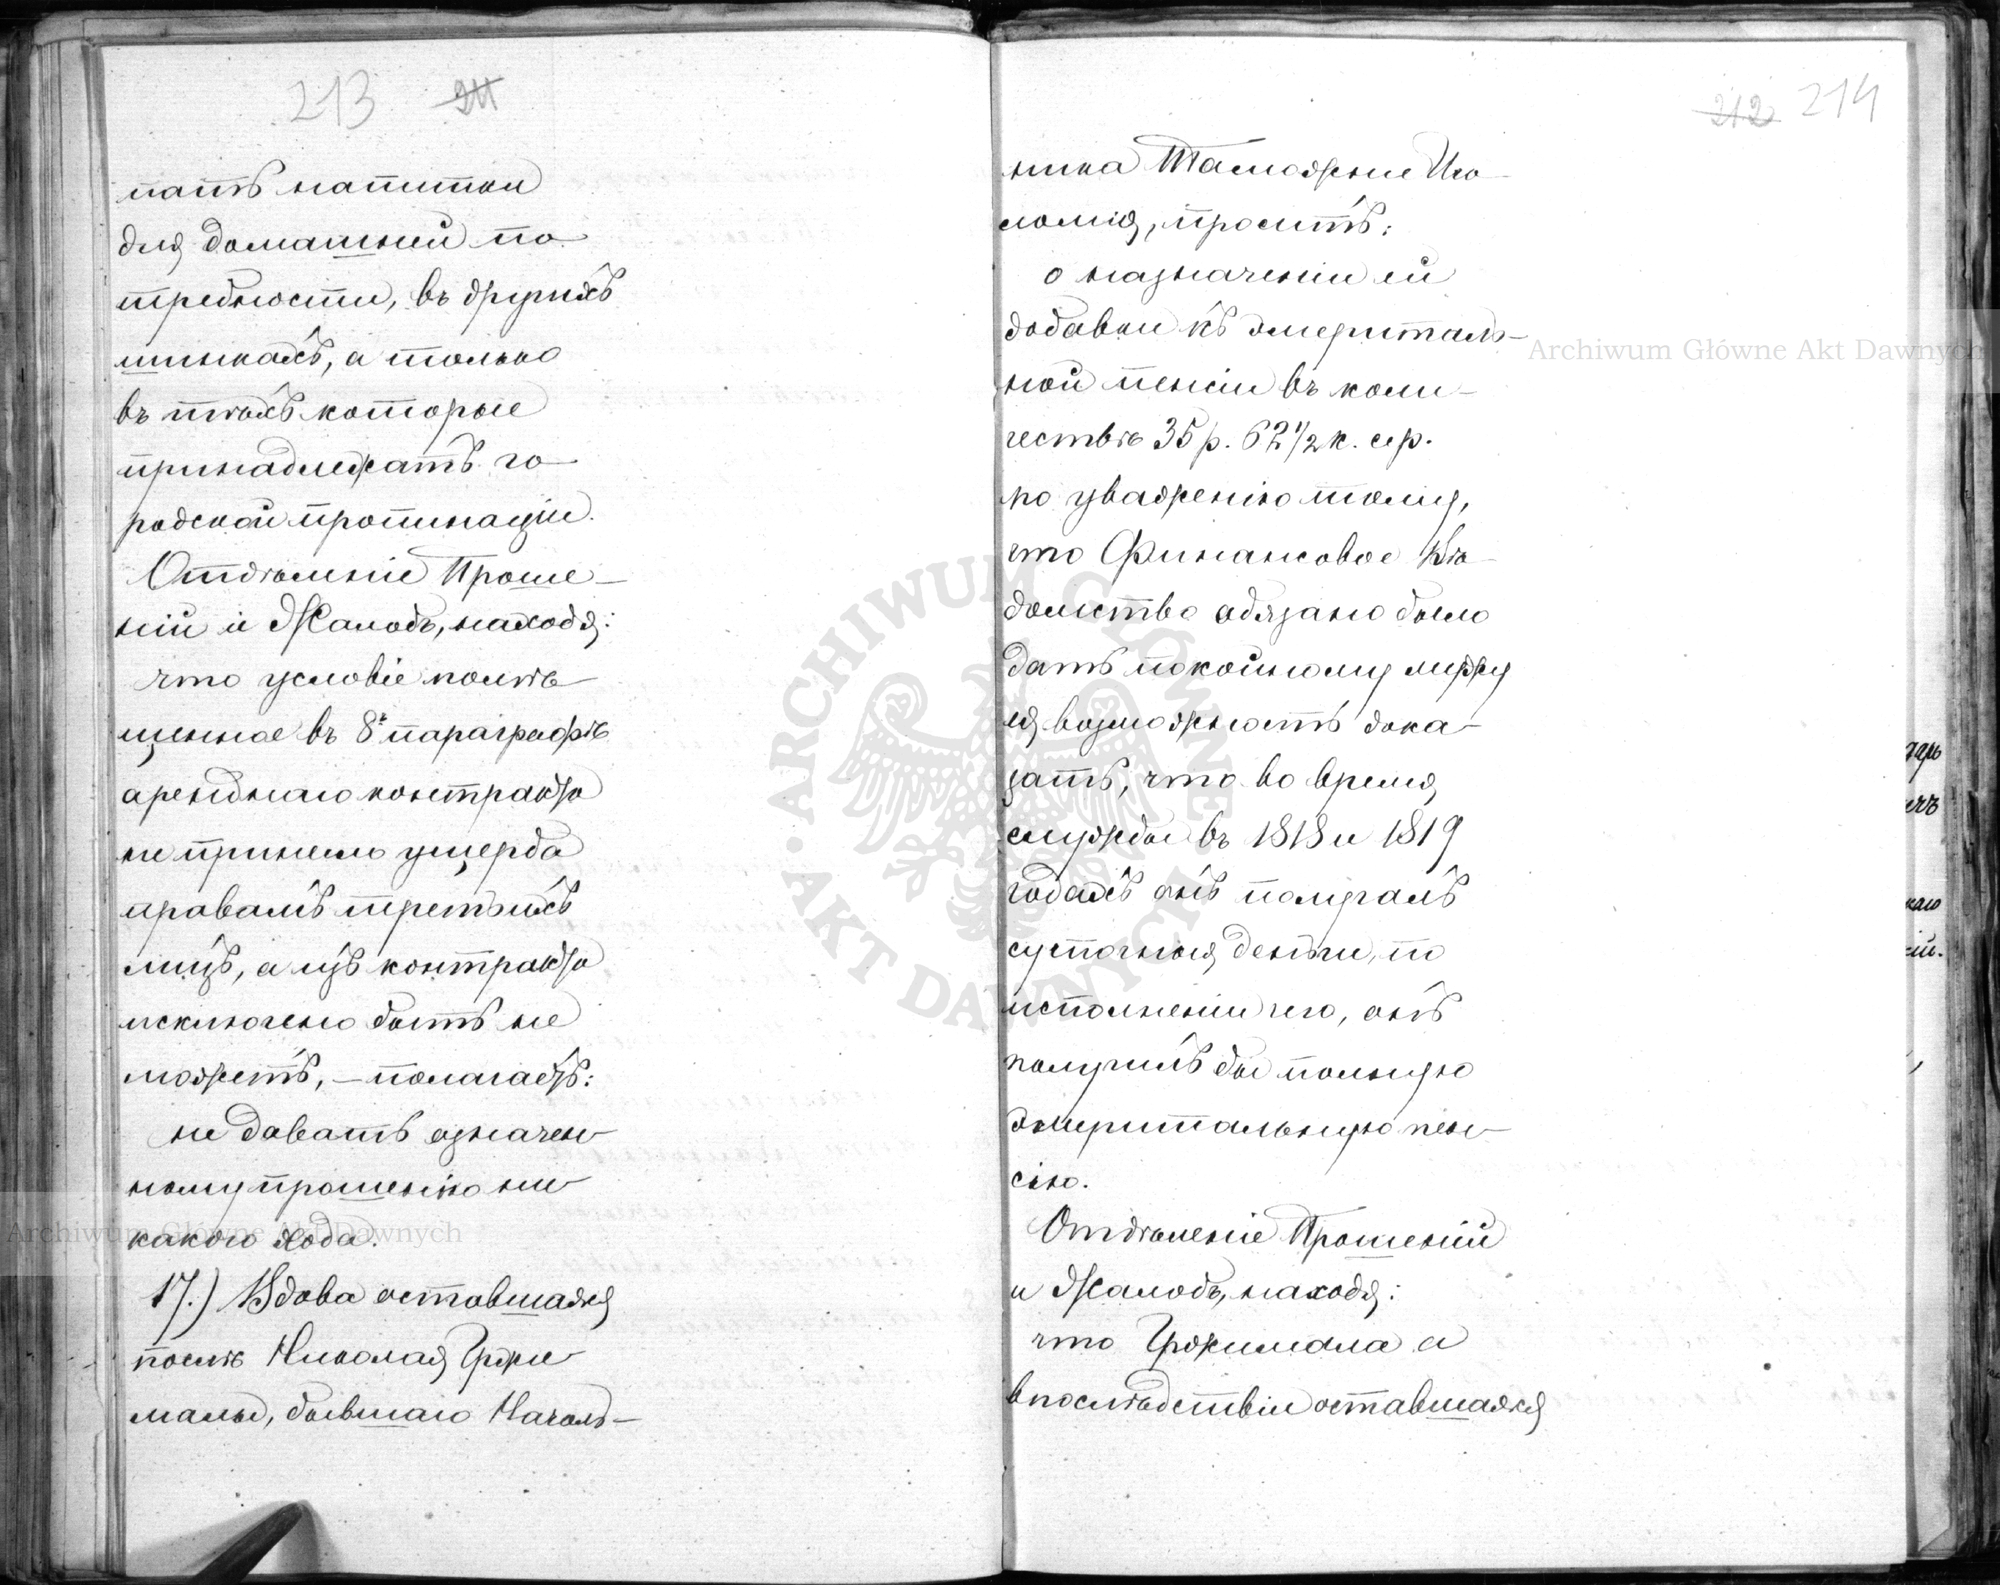 213 211
пать напитки
для домашней по-
требности, въ другихъ
шинкахъ, а только
въ тѣхъ которые
принадлежатъ го-
родской пропинаціи.
Отдѣленіе Проше-
ній и Жалобъ, находя:
что условіе помѣ-
щенное въ 8мъ параграфѣ
аренднаго контракта
не принесло ущерба
правамъ третьихъ
лицъ, а изъ контракта
исключено быть не
можетъ, – полагаетъ:
не давать означен-
ному прошенію ни-
какого хода.
17.) Вдова оставшаяся
послѣ Николая Гржи-
малы, бывшаго Началь-
212 214
ника Таможни Иго-
ломія, проситъ:
о назначеніи ей
добавки къ эмериталь-
ной пенсіи въ коли-
чествѣ 35 р. 62 1/2 к. сер.
по уваженію тому,
что Финансовое Вѣ-
домство обязано было
дать покойному мужу
ея возможность дока-
зать, что во время
службы въ 1818 и 1819
годахъ онъ получалъ
суточныя деньги, по
исполненіи чего, онъ
получилъ бы полную
эмеритальную пен-
сію.
Отдѣленіе Прошеній
и Жалобъ, находя:
что Гржимала а
впослѣдствіи оставшаяся
Archiwum Główne Akt Dawnych
Archiwum Główne Akt Dawnych
ARCHIWUM GŁÓWNE
AKT DAWNYCH